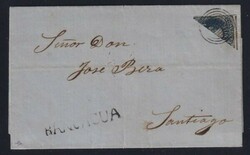 Señor Don
José Bera
Santiago
RANCAGUA